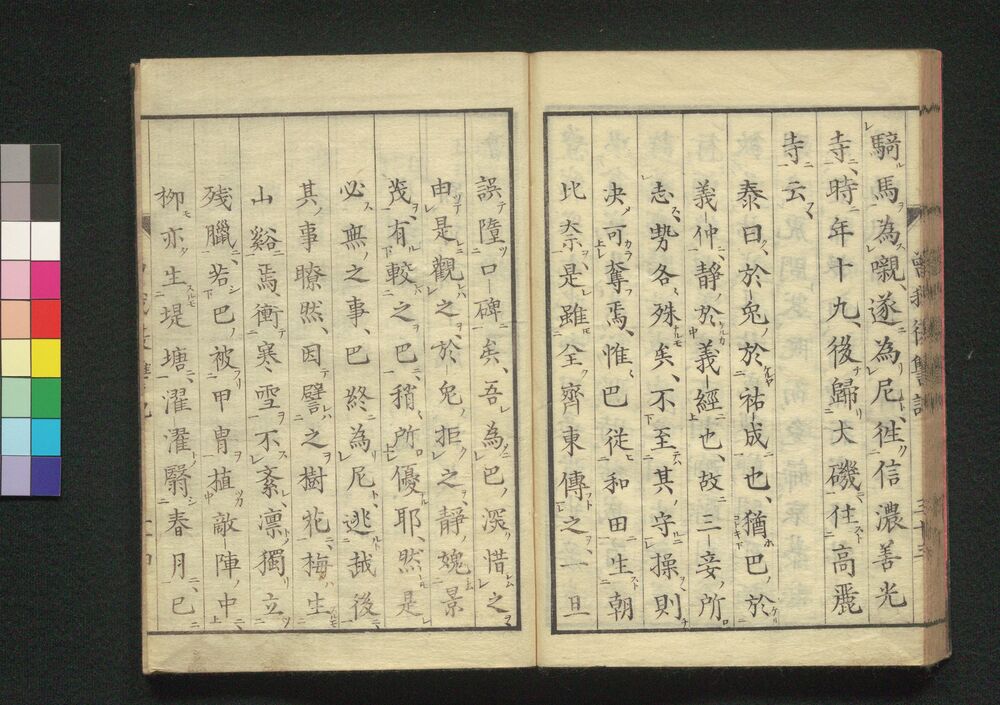 騎馬為嚫、遂為尼、徃信濃善光
寺、時年十九、後歸大磯、住高麗
寺云
泰曰、於兔於祐成也、猶巴於
義仲、靜於義經也、故三妾所
志㔟各殊矣、不至其守操則
決可奪焉、惟巴従和田生朝
比奈是雖全齊東傳之、一旦
誤墮口碑矣、吾為巴深惜之
申是觀之於兔拒之、靜媿景
茂、有較之巴、稍所優耶、然是
必無之事、巴終為尼、逃越後
其事瞭然、因譬之樹花、梅生
山谿焉、衝寒雪不紊、凛獨立
残臘、若巴被甲冑植敵陣中
栁亦生堤塘、濯濯翳春月、已